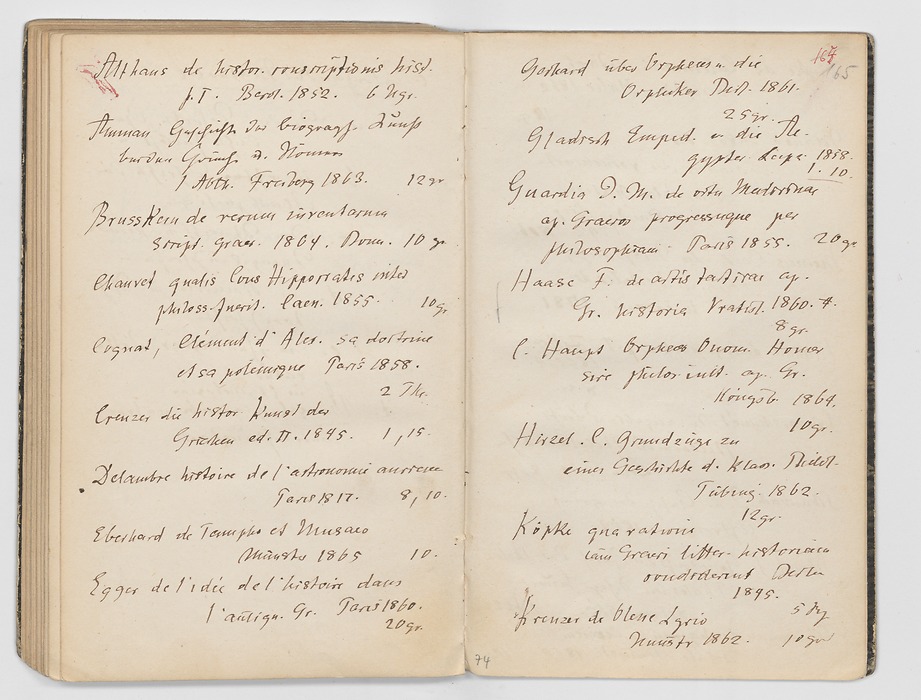 Althaus de histor. conscriptionis hist.
f. I. Berol. 1852. 6 Ngr.
Amman Geschichte der biograph. Kunst
bei den Griech. u. Römern
1 Abth. Freiberg 1863. 12 gr
Brusskern de rerum inventarum
script. graec. 1864. Bonn. 10 gr
Chauvet qualis Cous Hippocrates inter
philoss. fuerit. Caen. 1855. 10 gr
Cognat, Clément d'Alex. sa doctrine
et sa polémique Paris 1858.
2 Thr.
Creuzer die histor. Kunst der
Griechen ed. II. 1845. 1, 15.
Delambre histoire de l'astronomie ancienne
Paris 1817. 8, 10.
Eberhard de Pampho et Musaeo
Münster 1865 10.
Egger de l'idée de l'histoire dans
l'antiqu. Gr. Paris 1860.
20 gr.
74
164
165
Gerhard über Orpheus u. die
Orphiker Berl. 1861.
25 gr.
Gladisch Emped. u. die Ae-
gypter Leipz. 1858.
1. 10.
Guardia D. M. de ortu Medicinae
ap. Graecos progressuque per
philosophiam Paris 1855. 20 gr
Haase F. de artis tacticae ap.
Gr. historia Vratisl. 1860. 4.
8 gr.
C. Haupt Orpheus Onom. Homer
sive philos. ap. Gr.
Königsb 1864.
10 gr.
Hirzel. C. Grundzüge zu
einer Geschichte d. klass. Philol.
Tübing. 1862.
12 gr.
Köpke qua ratione
iam Graeci litter. historiam
condiderint Berlin
1845.
5 Ng
Kreuzer de Olene Lycio
Münstr 1862. 10 gr